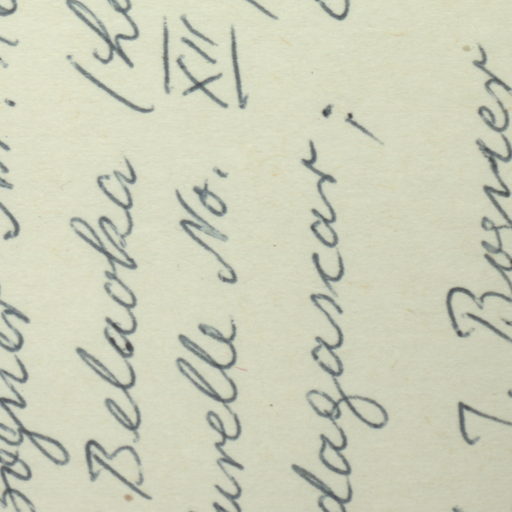 Belaoka (he
urelle No. XII
dagascar;
J. Bosser